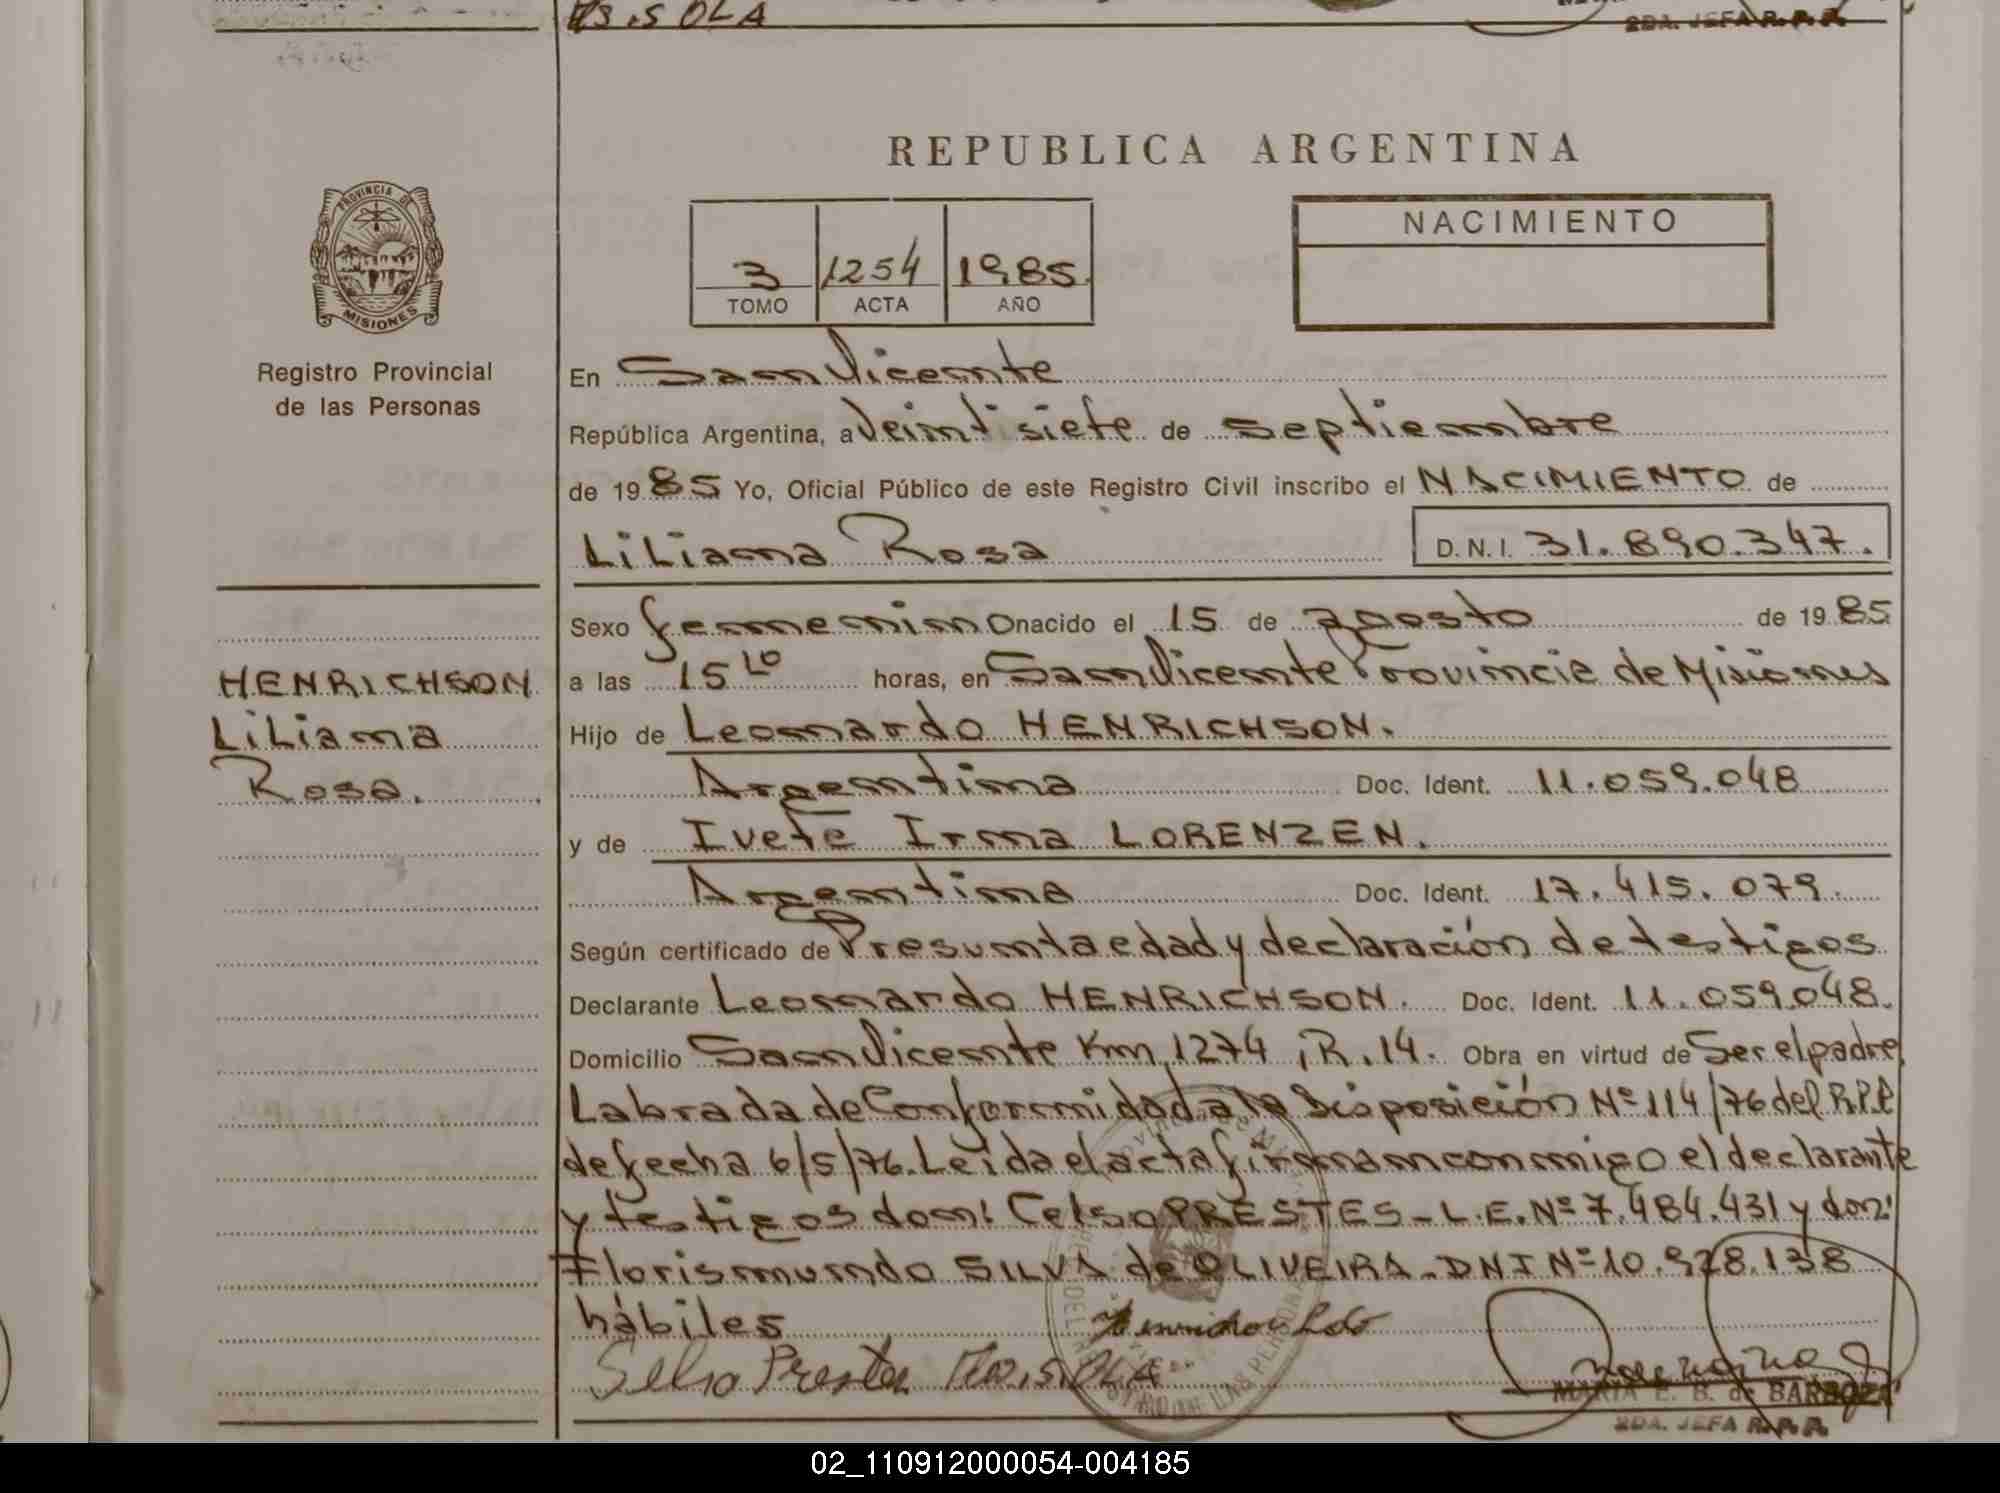 2DA. JEFA R.P.P.
REPUBLICA ARGENTINA
PROVINCIA DE
MISIONES
Registro Provincial
de las Personas
3 1254 1985
TOMO ACTA AÑO
NACIMIENTO
En San Vicente
República Argentina, a Veintisiete de septiembre
de 1985 Yo, Oficial Público de este Registro Civil inscribo el NACIMIENTO de
Liliana Rosa D.N.I. 31.890.347.
HENRICHSON
Liliana
Rosa.
Sexo femenino nacido el 15 de agosto de 1985
a las 15 horas, en San Vicente Provincia de Misiones
Hijo de Leonardo HENRICHSON.
Argentina Doc. Ident. 11.059.048
y de Ivete Irma LORENZEN.
Argentina Doc. Ident. 17.415.079.
Según certificado de Presunta edad y declaración de testigos
Declarante Leonardo HENRICHSON. Doc. Ident. 11.059.048.
Domicilio San Vicente Km 1274, R. 14. Obra en virtud de Ser el padre
Labrada de Conformidad a la Disposición Nº 114/76 del R.P.P.
de fecha 6/5/76. Leída el acta firman conmigo el declarante
y testigos don: Celso PRESTES - L.E. Nº 7.484.431 y don:
Florismundo SILVA de OLIVEIRA - DNI Nº 10.928.138
hábiles
Selso Prestes
MARIA E. B. de BARBOZA
2DA. JEFA R.P.P.
02_110912000054-004185